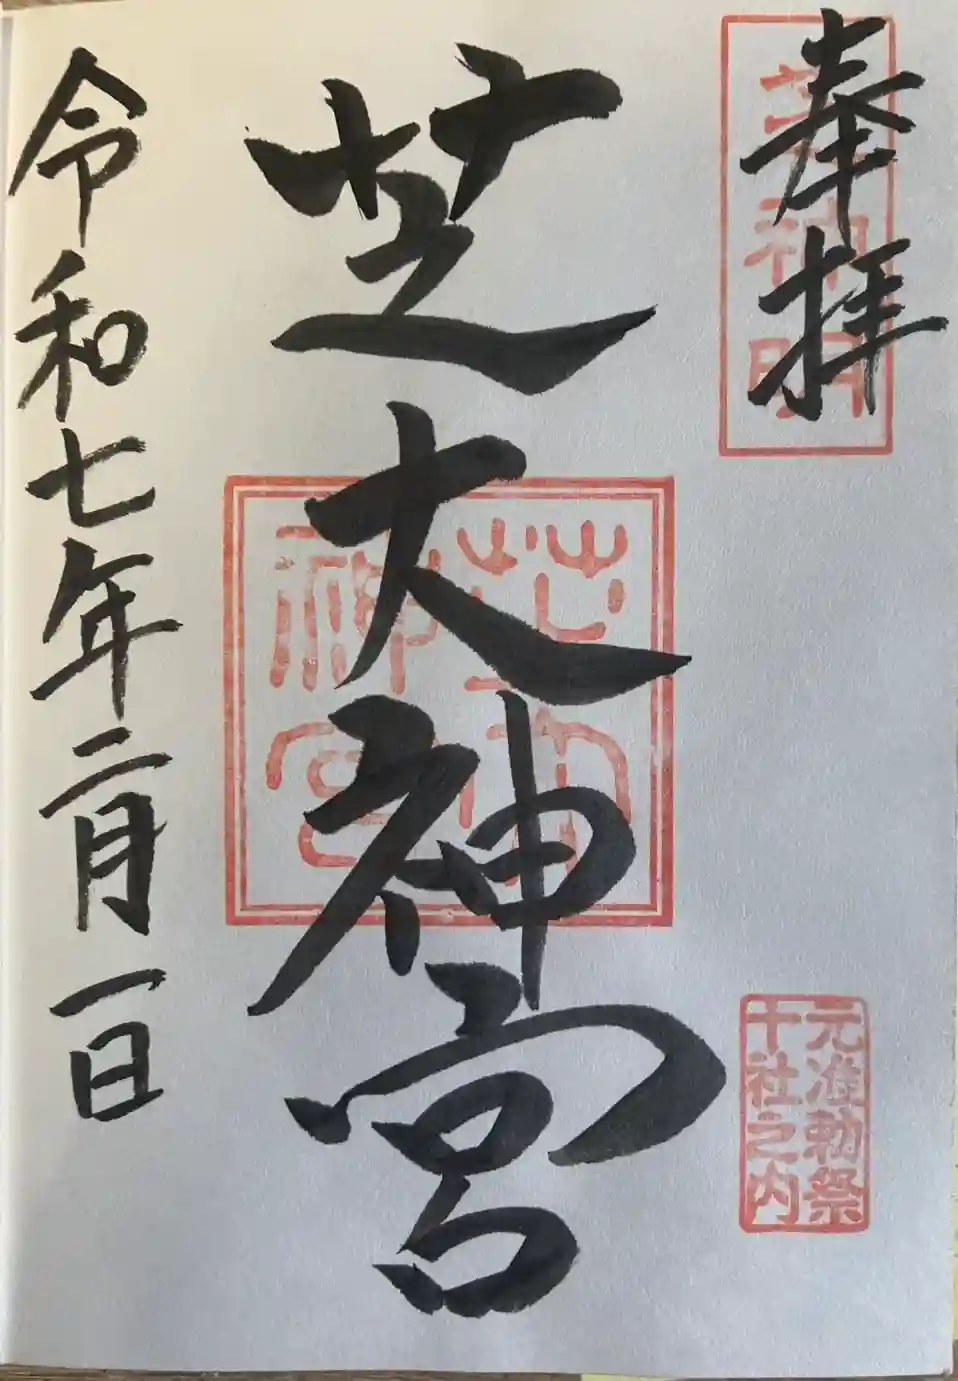 奉拝
芝神明
元准勅祭
十社之内
芝大神宮
芝大
神宮
令和七年二月一日